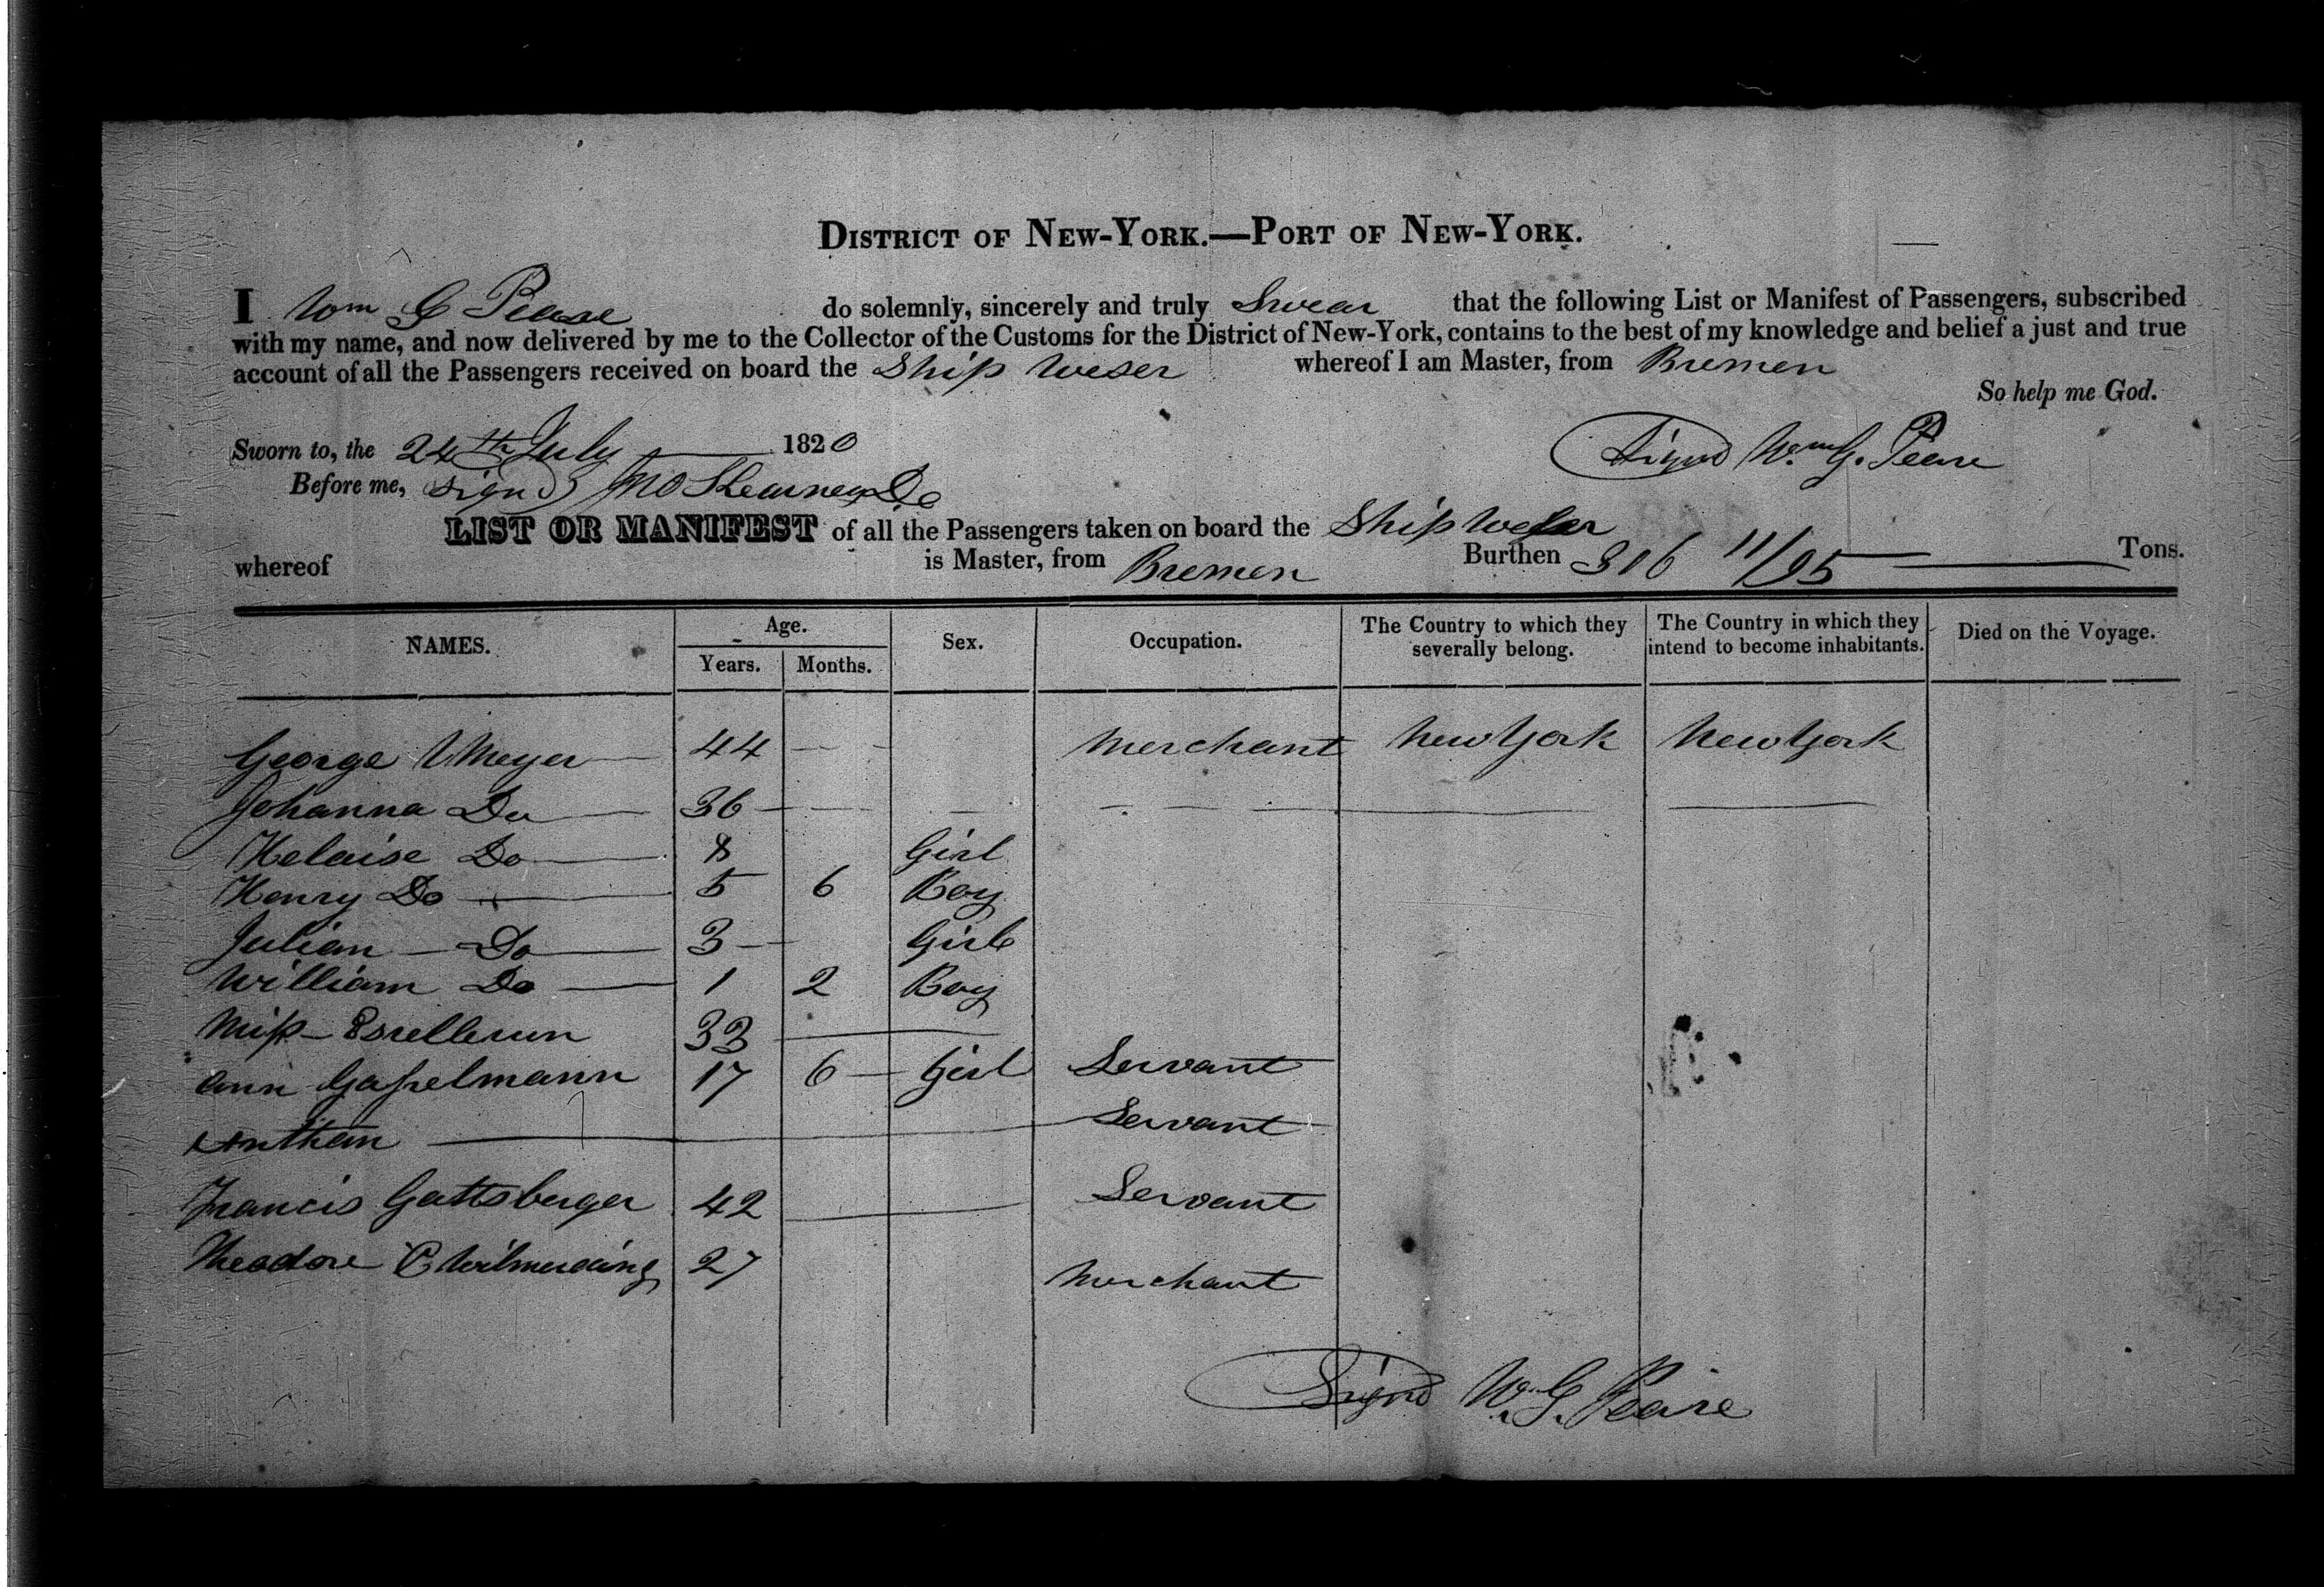 DISTRICT OF NEW-YORK.—PORT OF NEW-YORK.
I Wm G Pease do solemnly, sincerely and truly Swear that the following List or Manifest of Passengers, subscribed
with my name, and now delivered by me to the Collector of the Customs for the District of New-York, contains to the best of my knowledge and belief a just and true
account of all the Passengers received on board the Ship Weser whereof I am Master, from Bremen
So help me God.
Sworn to, the 24th July 1820 Signd Wm G. Pease
Before me, Signd
LIST OR MANIFEST of all the Passengers taken on board the Ship Weser
whereof is Master, from Bremen Burthen 306 11/95 Tons.
NAMES. Age. Years. Months. Sex. Occupation. The Country to which they severally belong. The Country in which they intend to become inhabitants. Died on the Voyage.
George Meyer 44 Merchant New York New York
Johanna Do 36
Helaise Do 8 Girl
Henry Do 5 6 Boy
Julian Do 3 Girl
William Do 1 2 Boy
Miss 33
Ann Gasselmann 17 6 Girl Servant
Servant
Francis Gattsberger 42 Servant
Theodore C Wilmerding 27 Merchant
Signd W. G. Pease